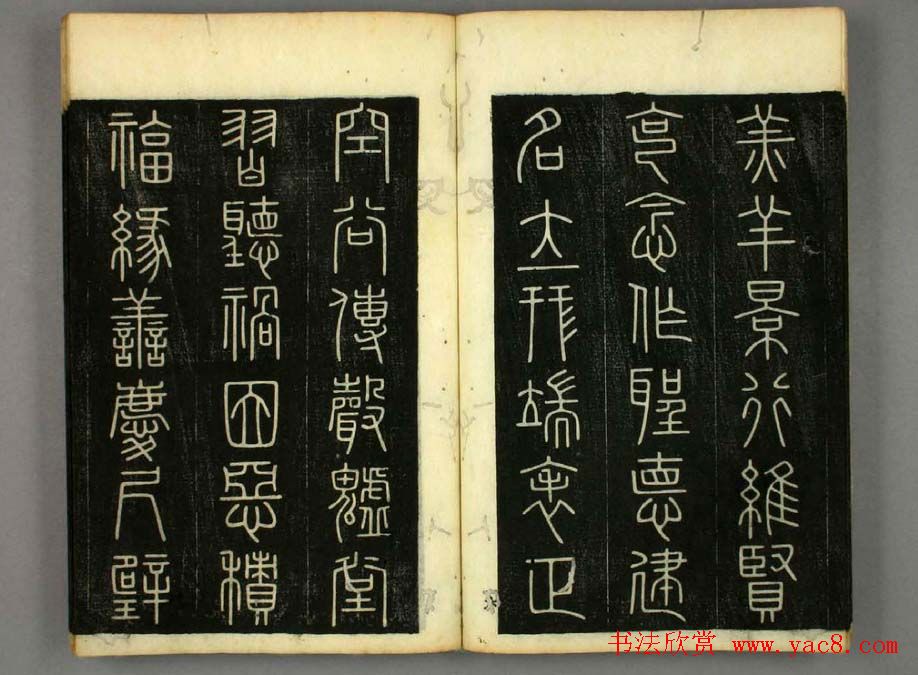 羔羊景行維賢
克念作聖悳建
名立形端表正
空谷傳聲虛堂
習聽禍因惡積
福緣善慶尺璧
书法欣赏 www.yac8.com